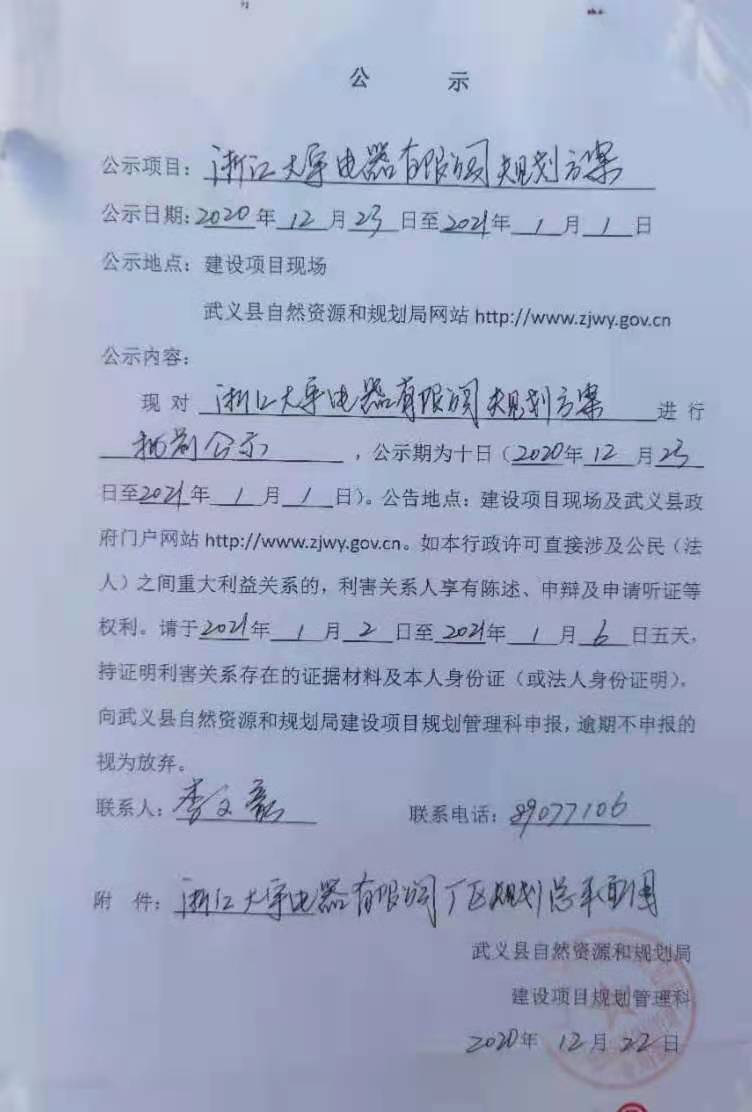 公 示
公示项目：浙江大宇电器有限公司规划方案
公示日期：2020年12月23日至2021年1月1日
公示地点：建设项目现场
武义县自然资源和规划局网站 http://www.zjwy.gov.cn
公示内容：
现对浙江大宇电器有限公司规划方案进行
批前公示，公示期为十日（2020年12月23
日至2021年1月1日）。公告地点：建设项目现场及武义县政
府门户网站 http://www.zjwy.gov.cn。如本行政许可直接涉及公民（法
人）之间重大利益关系的，利害关系人享有陈述、申辩及申请听证等
权利。请于2021年1月2日至2021年1月6日五天，
持证明利害关系存在的证据材料及本人身份证（或法人身份证明），
向武义县自然资源和规划局建设项目规划管理科申报，逾期不申报的
视为放弃。
联系人：李文 联系电话：89077106
附 件：浙江大宇电器有限公司厂区规划总平面图
武义县自然资源和规划局
建设项目规划管理科
2020年12月22日